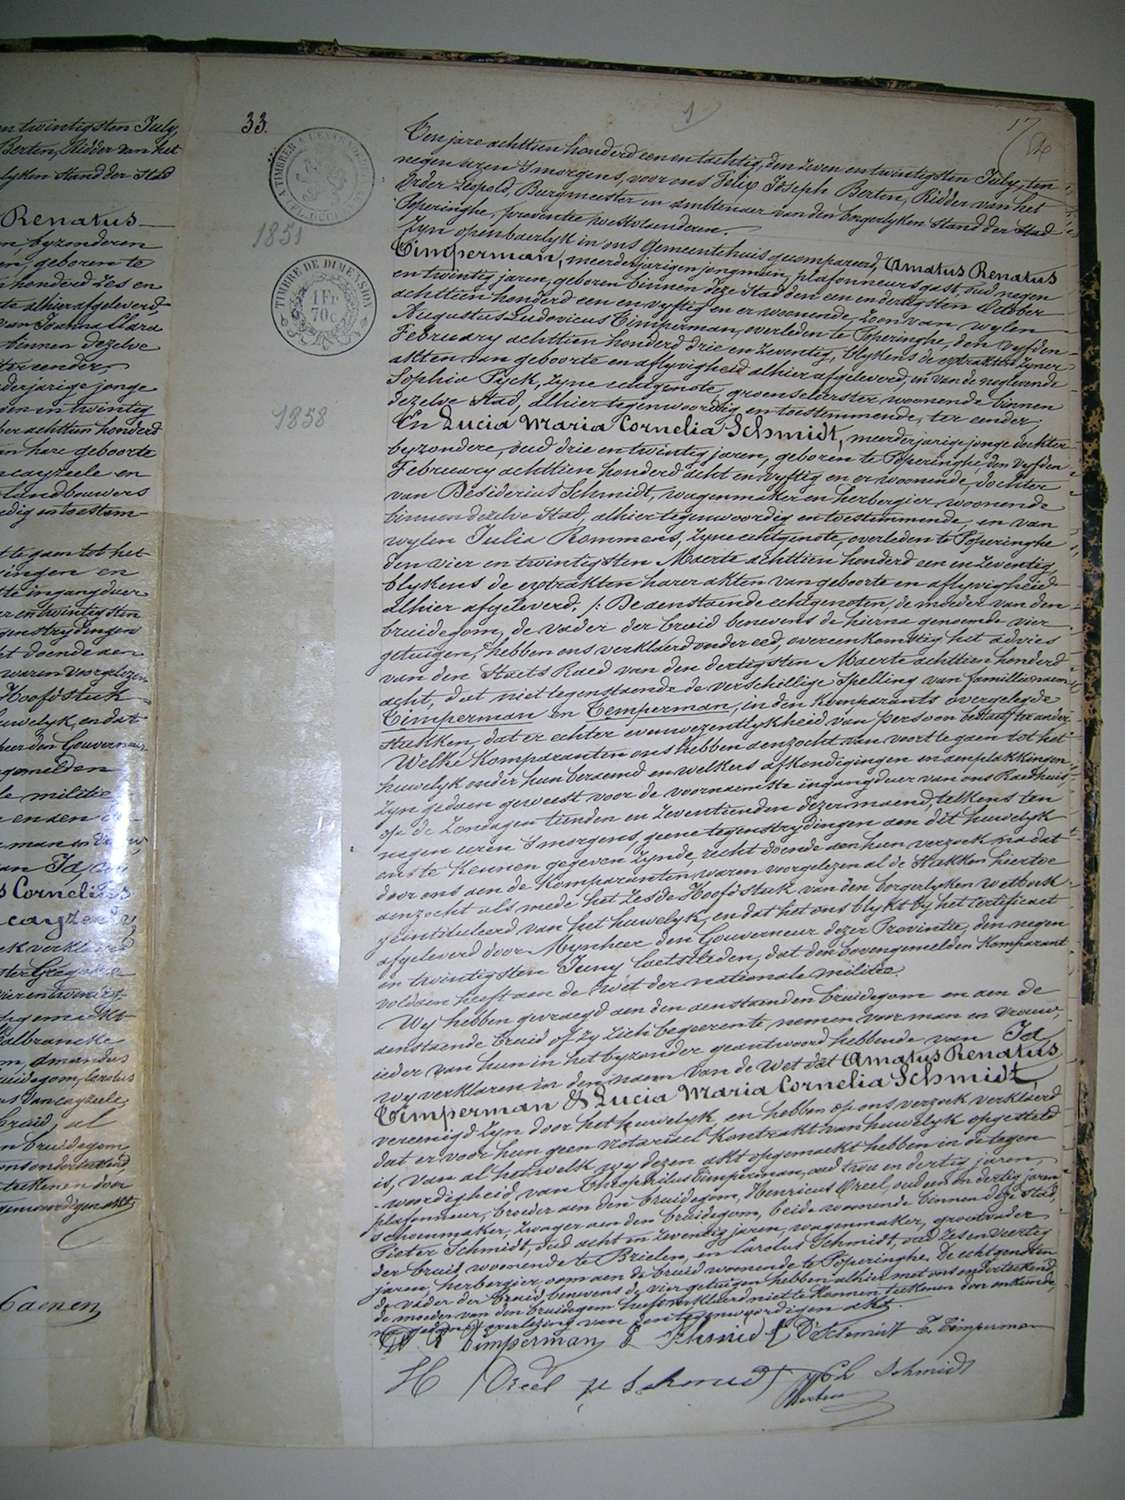 en twintigsten July,
Berten, Ridder van het
lyken Stand der Stad
Renatus
byzonderen
geboren te
honderd zes en
alhier afgeleverd
van Joanna Clara
binnen dezelve
ter eender,
derjarige jonge
twintig
achttien honderd
geboorte
cayzeele en
Landbouwers
edig en toestem-
te gaen tot het
ingen en
te ingangdeur
en twintigsten
genstrydingen
t doende aen
waren voorgelezen
Hoofdstuk
uwelyk, en dat
heer den Gouverneur
gemelden
le militie
man en vrouw,
Ja,
s Cornelius
cayzeele
verklaerd
vier en twintig
Amandus
bruidegom, Carolus
van cayzeele
bruid, al
bruidegom
teekenen door
genwoordigen akt,
Caenen
33.
1
17
A TIMBRER
1851
TIMBRE DE DIMENSION
1 Fr
70c
1858
Ten jare achttien honderd een en tachtig, den zeven en twintigsten July, ten
negen uren 's morgens, voor ons Felix Joseph Berten, Ridder van het
Order Leopold, Burgmeester en ambtenaer van den borgerlyken Stand der Stad
Poperinghe, provintie Westvlaenderen.
Zyn openbaerlyk in ons gemeentehuis gecompareerd, Amatus Renatus
Timperman, meerderjarigen jongman, plafonneurs gast, oud negen
en twintig jaren, geboren binnen deze Stad den een en dertigsten October
achttien honderd een en vyftig en er woonende, zoon van wylen
Augustus Ludovicus Timperman, overleden te Poperinghe, den vyfden
February achttien honderd drie en zeventig, blykens de extrakten zyner
akten van geboorte en aflyvigheid alhier afgeleverd, en van de nagelevende
Sophia Pyck, zyne echtgenote, groenselierster, woonende binnen
dezelve Stad, alhier tegenwoordig en toestemmende, ter eender,
En Lucia Maria Cornelia Schmidt, meerderjarige jonge dochter
byzondere, oud drie en twintig jaren, geboren te Poperinghe den vyfden
February achttien honderd acht en vyftig en er woonende, dochter
van Desiderius Schmidt, wagenmaker en herbergier, woonende
binnen dezelve Stad, alhier tegenwoordig en toestemmende, en van
wylen Julia Rommens, zyne echtgenote, overleden te Poperinghe
den vier en twintigsten Maerte achttien honderd een en zeventig,
blykens de extrakten harer akten van geboorte en aflyvigheid
alhier afgeleverd. /: De aenstaende echtgenoten, de moeder van den
bruidegom, de vader der bruid benevens de hierna genoemde vier
getuigen, hebben ons verklaerd onder eed, overeenkomstig het advies
van den Staets Raed van den dertigsten Maerte achttien honderd
acht, dat niettegenstaende de verschillige spelling van familienaem
Timperman en Temperman, in den komparants overgelegde
stukken, dat er echter eenwezentlykheid van persoon bestaet, ter ander.
Welke komparanten ons hebben aenzocht van voort te gaen tot het
huwelyk onder hun beraemd en welkers afkondigingen en aenplakkingen
zyn gedaen geweest voor de voornaemste ingangdeur van ons Raedhuis,
op de Zondagen tienden en zeventienden dezer maend, telkens ten
negen uren 's morgens, geene tegenstrydingen aen dit huwelyk
ons te kennen gegeven zynde, recht doende aen hun verzoek, na dat
door ons aen de komparanten waren voorgelezen al de stukken hiertoe
aenzocht als mede het zesde Hoofdstuk van den borgerlyken wetboek
geintituleerd van het huwelyk, en dat het ons blykt by het certificaet
afgeleverd door Mynheer den Gouverneur dezer Provintie, den negen
en twintigsten Juny laetstleden, dat den bovengemelden komparant
voldaen heeft aen de Wet der nationale militie.
Wy hebben gevraegd aen den aenstaenden bruidegom en aen de
aenstaende bruid of zy zich begeerente nemen voor man en vrouw,
ieder van hun in het byzonder geantwoord hebbende van Ja,
wy verklaren in den naem van de Wet dat Amatus Renatus
Timperman & Lucia Maria Cornelia Schmidt,
vereenigd zyn door het huwelyk en hebben op ons verzoek verklaerd
dat er voor hun geen notarieel kontrakt van huwelyk opgesteld
is, van al het welk wy dezen akt opgemaekt hebben in de tegen
woordigheid van Theophilus Timperman, oud twee en dertig jaren,
plafonneur, broeder aen den bruidegom, Henricus Dreel, oud een en dertig jaren
schoenmaker, zwager aen den bruidegom, beide woonende binnen deze stad,
Pieter Schmidt, oud acht en zeventig jaren, wagenmaker, grootvader
der bruid, woonende te Brielen, en Carolus Schmidt, oud zes en veertig
jaren, herbergier, oom aen de bruid woonende te Poperinghe. De echtgenoten
de vader der bruid, benevens de vier getuigen hebben alhier met ons onderteekend,
de moeder van den bruidegom heeft verklaerd niet te kunnen teekenen door onkunde,
na gedane voorlezing van tegenwoordigen akt.
Timperman L Schmidt D Schmidt T. Timperman
H Dreel p Schmidt Ch Schmidt
Berten